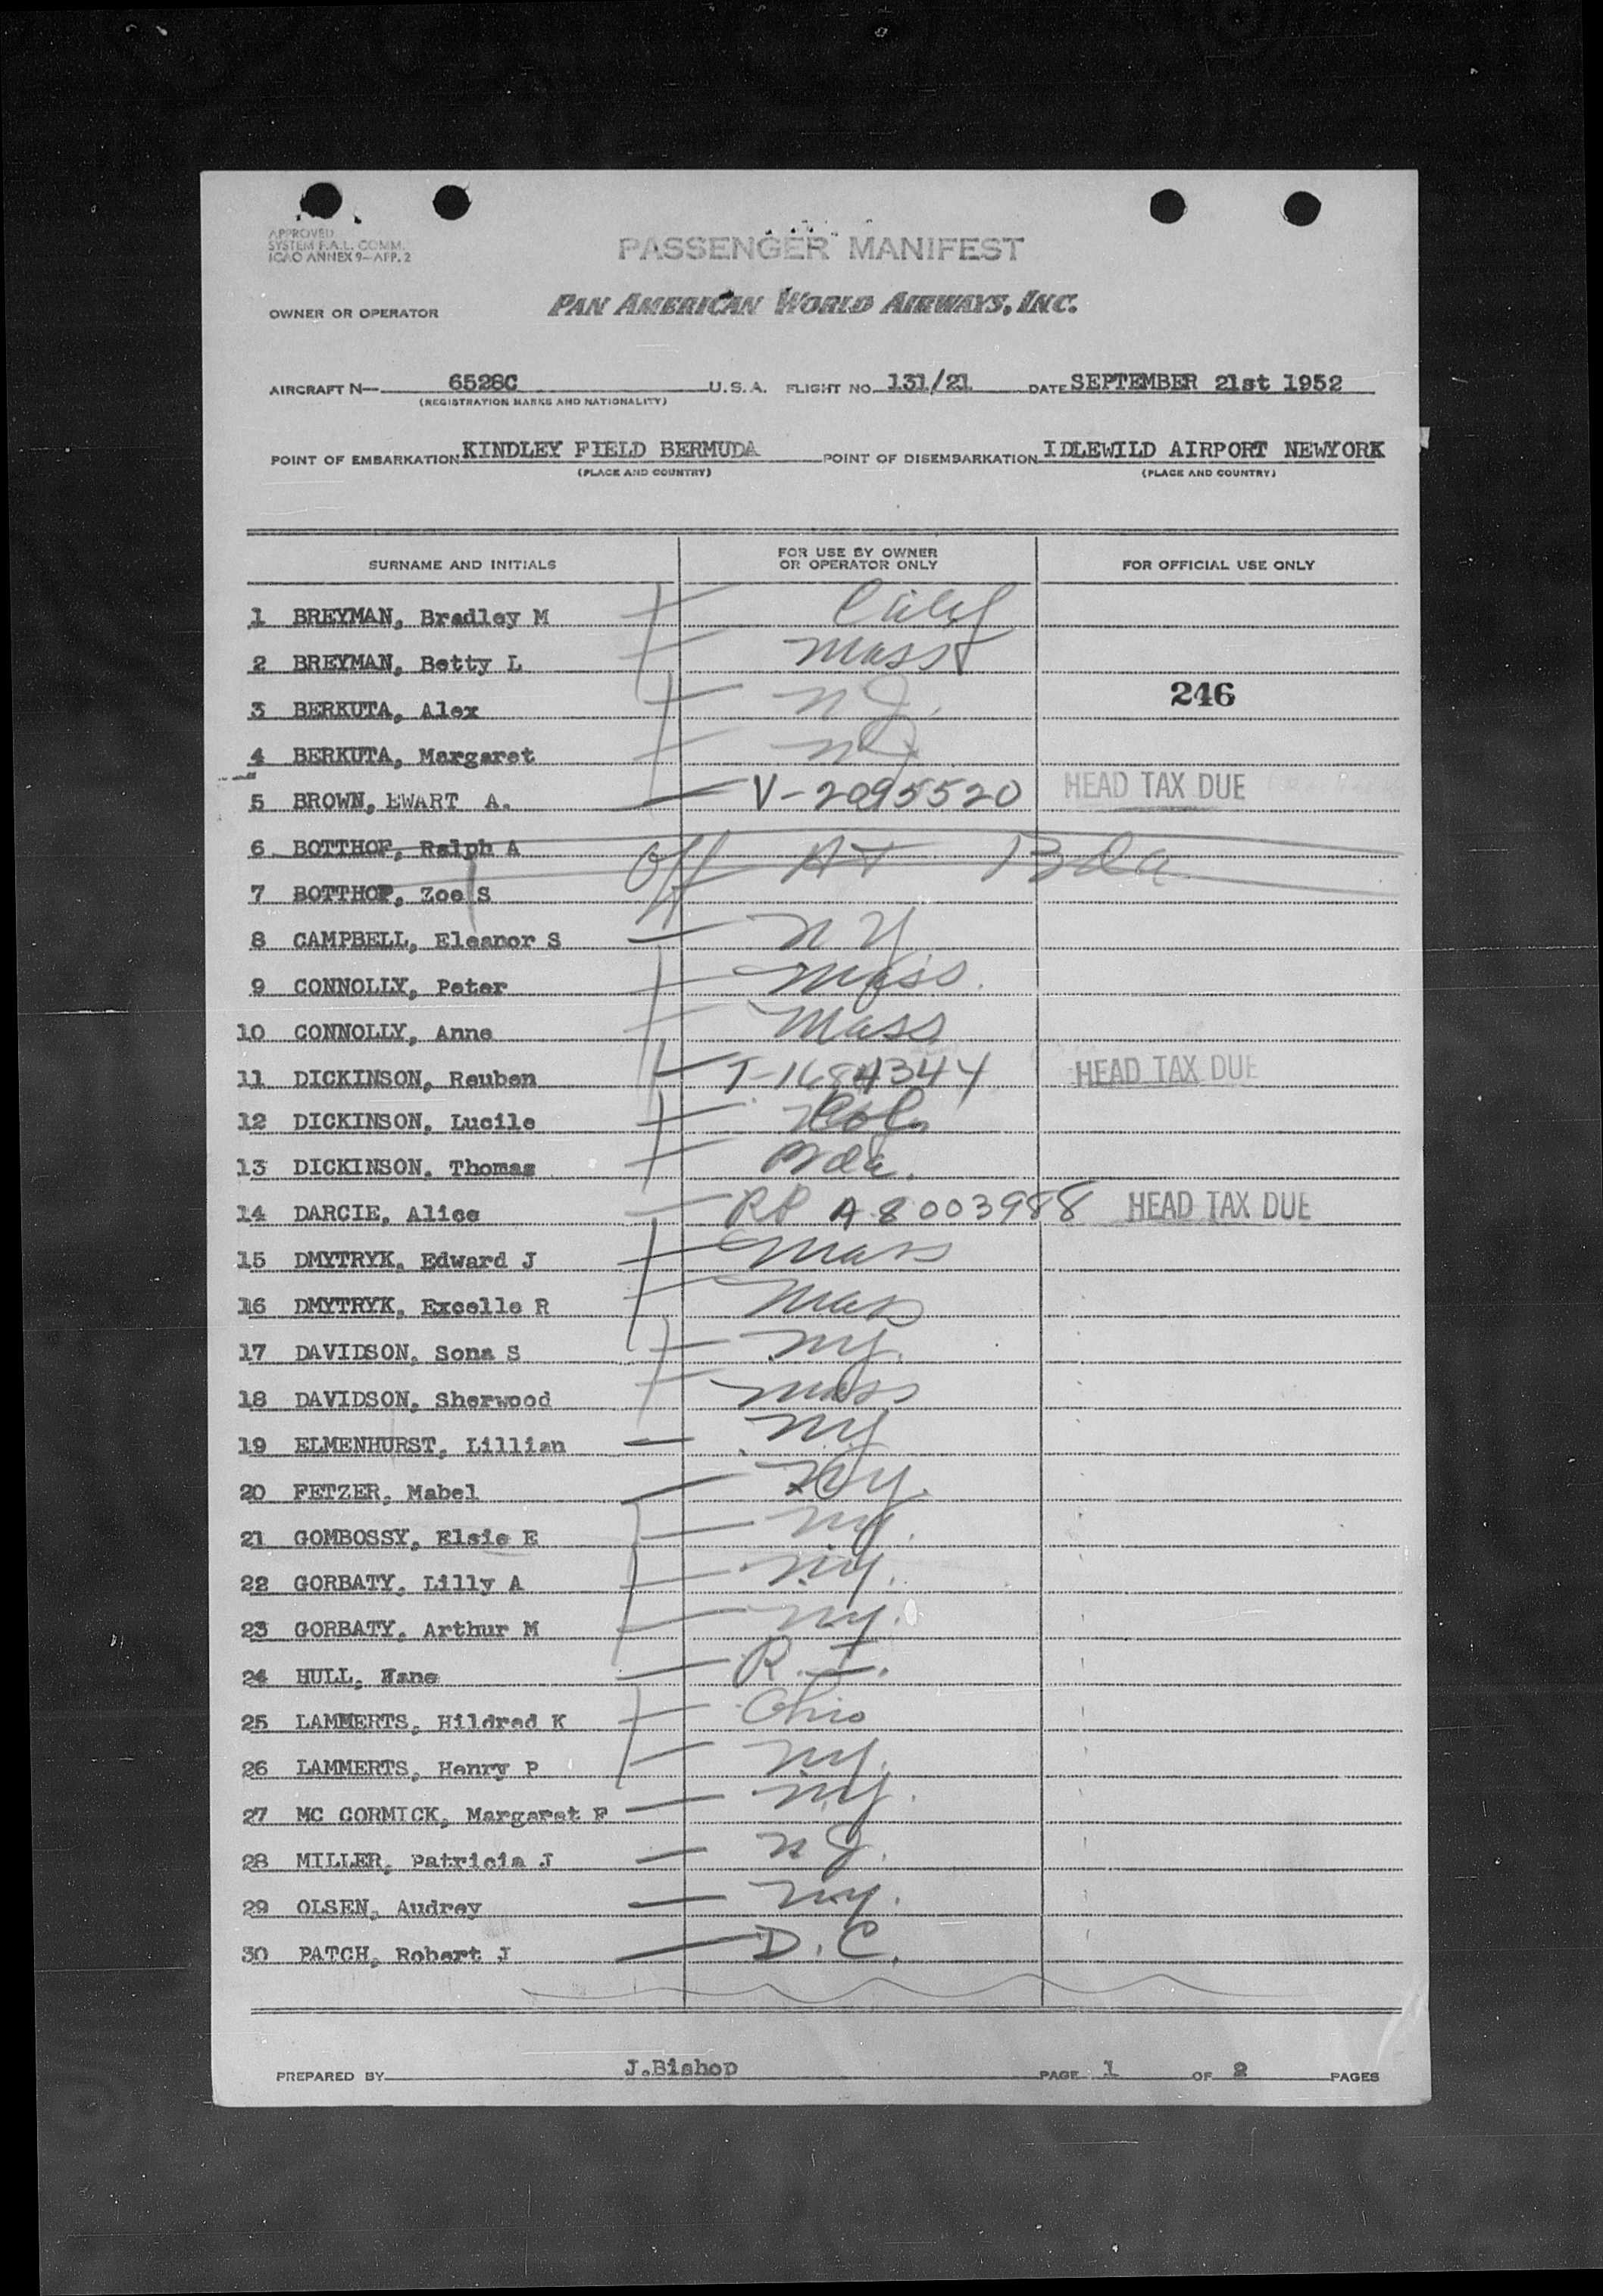 APPROVED
SYSTEM F.A.L. COMM.
ICAO ANNEX 9—APP. 2
PASSENGER MANIFEST
OWNER OR OPERATOR PAN AMERICAN WORLD AIRWAYS, INC.
AIRCRAFT N— 6528C U.S.A. FLIGHT NO. 131/21 DATE SEPTEMBER 21st 1952
(REGISTRATION MARKS AND NATIONALITY)
POINT OF EMBARKATION KINDLEY FIELD BERMUDA POINT OF DISEMBARKATION IDLEWILD AIRPORT NEWYORK
(PLACE AND COUNTRY) (PLACE AND COUNTRY)
SURNAME AND INITIALS FOR USE BY OWNER OR OPERATOR ONLY FOR OFFICIAL USE ONLY
1 BREYMAN, Bradley M Calif
2 BREYMAN, Betty L Mass
3 BERKUTA, Alex N J. 246
4 BERKUTA, Margaret N J
5 BROWN, EWART A. V-2095520 HEAD TAX DUE
6 BOTTHOF, Ralph A Off AT Bda
7 BOTTHOF, Zoe S
8 CAMPBELL, Eleanor S N Y
9 CONNOLLY, Peter Mass.
10 CONNOLLY, Anne Mass
11 DICKINSON, Reuben T-1684344 HEAD TAX DUE
12 DICKINSON, Lucile
13 DICKINSON, Thomas Bda.
14 DARCIE, Alice RP A 8003988 HEAD TAX DUE
15 DMYTRYK, Edward J Mass
16 DMYTRYK, Excelle R Mass
17 DAVIDSON, Sona S NY.
18 DAVIDSON, Sherwood Mass
19 ELMENHURST, Lillian NY
20 FETZER, Mabel NY.
21 GOMBOSSY, Elsie E NY.
22 GORBATY, Lilly A NY.
23 GORBATY, Arthur M NY.
24 HULL, Jane R.I.
25 LAMMERTS, Hildred K Ohio
26 LAMMERTS, Henry P NY.
27 MC CORMICK, Margaret F NY.
28 MILLER, Patricia J N J.
29 OLSEN, Audrey NY.
30 PATCH, Robert J D.C.
PREPARED BY J.Bishop PAGE 1 OF 2 PAGES